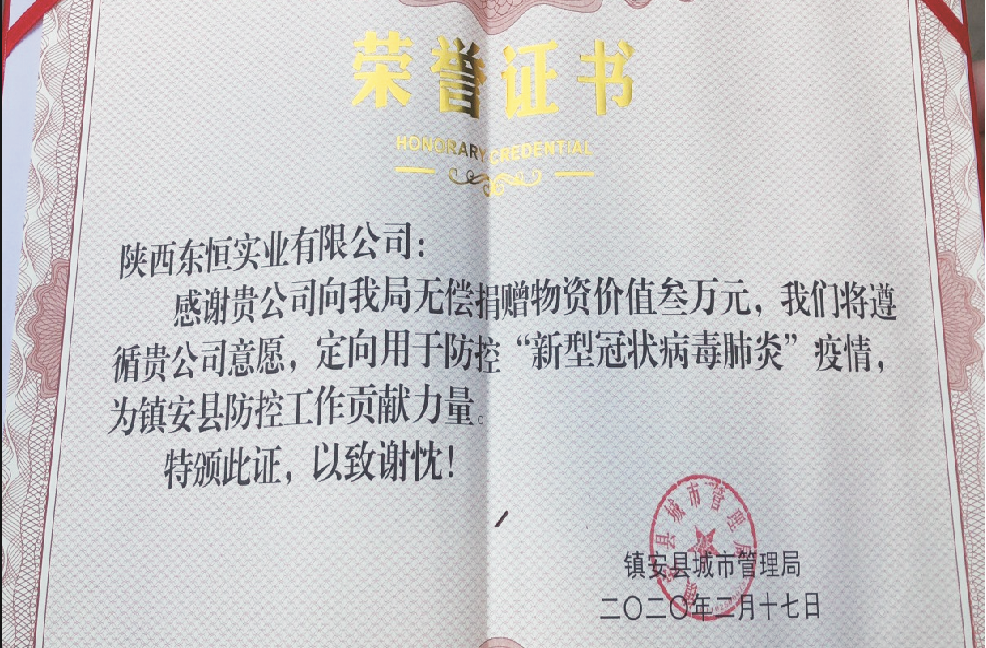 荣誉证书
HONORARY CREDENTIAL
陕西东恒实业有限公司：
感谢贵公司向我局无偿捐赠物资价值叁万元，我们将遵
循贵公司意愿，定向用于防控“新型冠状病毒肺炎”疫情，
为镇安县防控工作贡献力量。
特颁此证，以致谢忱！
镇安县城市管理局
镇安县城市管理局
二〇二〇年二月十七日